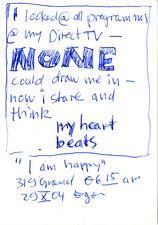 I looked @ all programming
@ my Direct TV —
NONE
could draw me in —
now i stare and
think
my heart
beats
"I am happy"
319 Grand 6 15 am
29 X 04